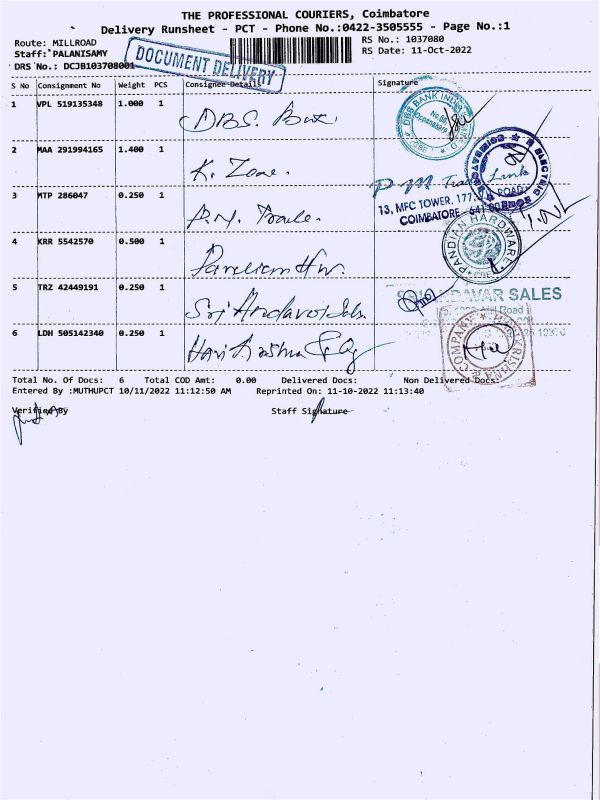 THE PROFESSIONAL COURIERS, Coimbatore
Delivery Runsheet - PCT - Phone No.:0422-3505555 - Page No.:1
Route: MILLROAD RS No.: 1037080
Staff: PALANISAMY RS Date: 11-Oct-2022
DRS No.: DCJB103708001
DOCUMENT DELIVERY
S No Consignment No Weight PCS Consignee Details Signature
1 VPL 519135348 1.000 1 DBS.
DBS BANK INDIA
2 MAA 291994165 1.400 1 K. Zone.
ELECTRIC
P M Trade Link
3 MTP 286047 0.250 1 P.M. Trade.
13, MFC TOWER, 177, ROAD
COIMBATORE - 641 001
4 KRR 5542570 0.500 1 Pandian Hw.
PANDIAN HARDWARE
5 TRZ 42449191 0.250 1 Sri Andavar Sales
ANDAVAR SALES
Mill Road
6 LDH 505142340 0.250 1 Hari Krishna & Co
HARIKRISHNA & COMPANY
Total No. Of Docs: 6 Total COD Amt: 0.00 Delivered Docs: Non Delivered Docs:
Entered By :MUTHUPCT 10/11/2022 11:12:50 AM Reprinted On: 11-10-2022 11:13:40
Verified By Staff Signature